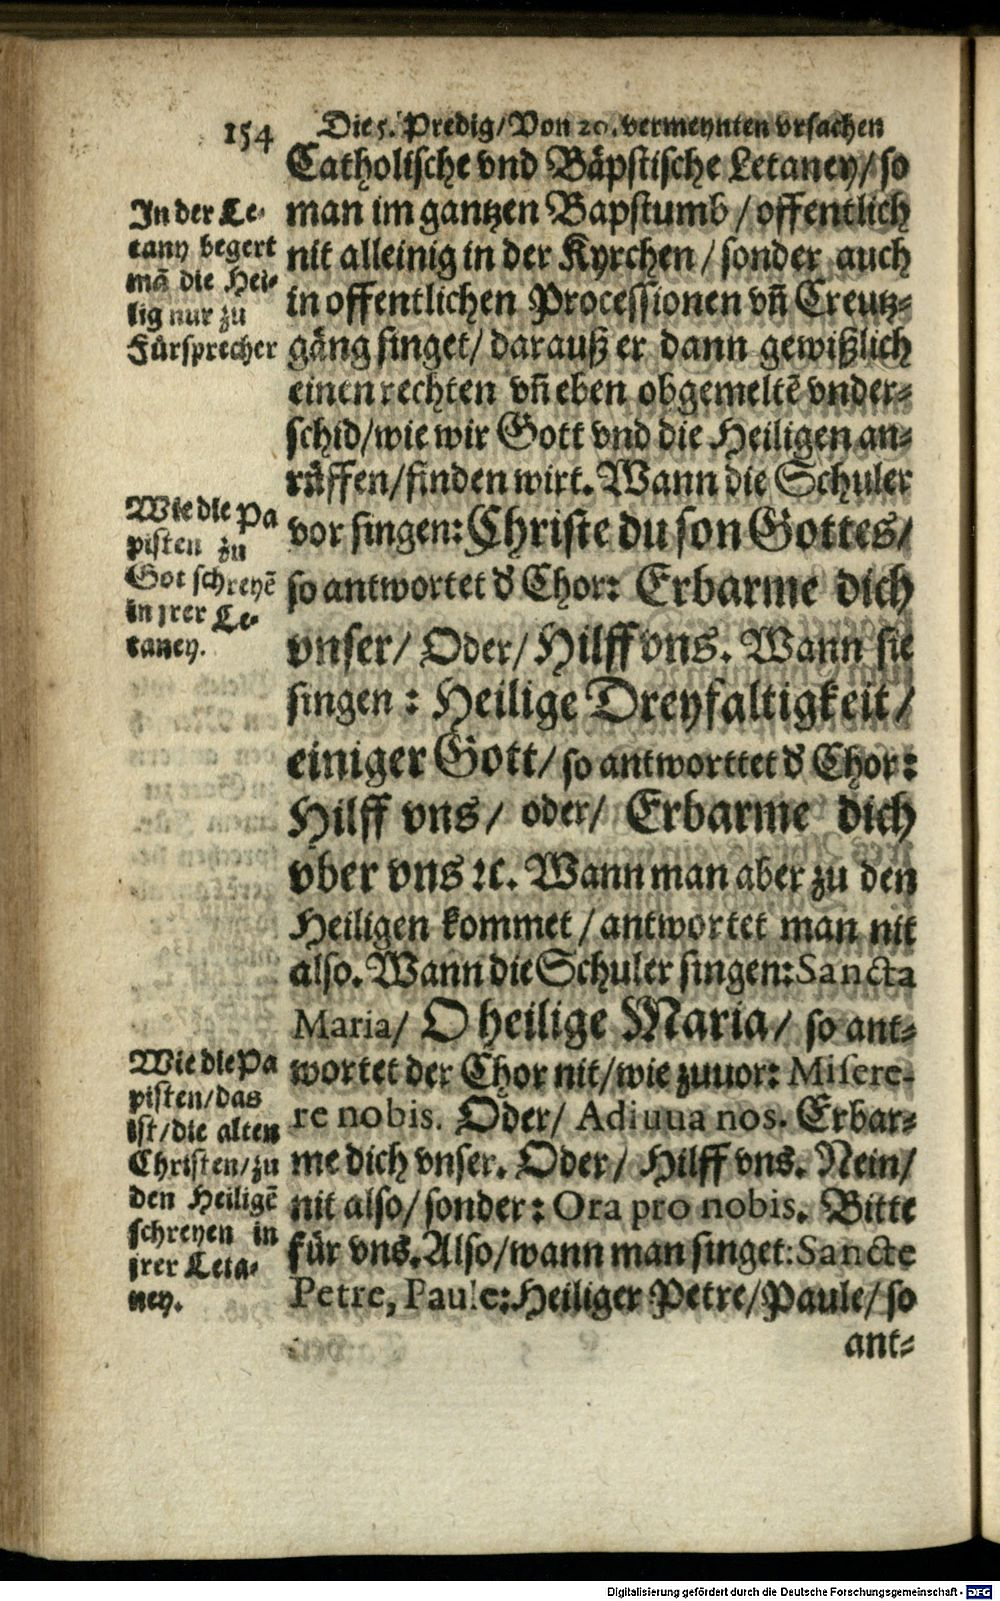 154
Die 5. Predig/Von 20. vermeynten vrsachen
Catholische vnd Bäpstische Letaney/so
man im gantzen Bapstumb/offentlich
nit alleinig in der Kyrchen/sonder auch
in offentlichen Processionen vn̄ Creutz-
gäng singet/darauß er dann gewißlich
einen rechten vn̄ eben obgemeltē vnder-
schid/wie wir Gott vnd die Heiligen an-
rüffen/finden wirt. Wann die Schuler
vor singen: Christe du son Gottes/
so antwortet d̕ Chor: Erbarme dich
vnser/ Oder/ Hilff vns. Wann sie
singen: Heilige Dreyfaltigkeit/
einiger Gott/ so antworttet d̕ Chor:
Hilff vns/ oder/ Erbarme dich
vber vns ꝛc. Wann man aber zu den
Heiligen kommet/antwortet man nit
also. Wann die Schuler singen: Sancta
Maria/ O heilige Maria/ so ant-
wortet der Chor nit/wie zuuor: Misere-
re nobis. Oder/ Adiuua nos. Erbar-
me dich vnser. Oder/ Hilff vns. Nein/
nit also/sonder: Ora pro nobis. Bitte
für vns. Also/wann man singet: Sancte
Petre, Paule: Heiliger Petre/Paule/so
ant-
In der Le-
tany begert
mā die Hei-
lig nur zu
Fürsprecher
Wie die Pa
pisten zu
Got schreyē
in jrer Le-
taney.
Wie die Pa
pisten/das
ist/die alten
Christen/zu
den Heiligē
schreyen in
jrer Leta-
ney.
Digitalisierung gefördert durch die Deutsche Forschungsgemeinschaft - DFG